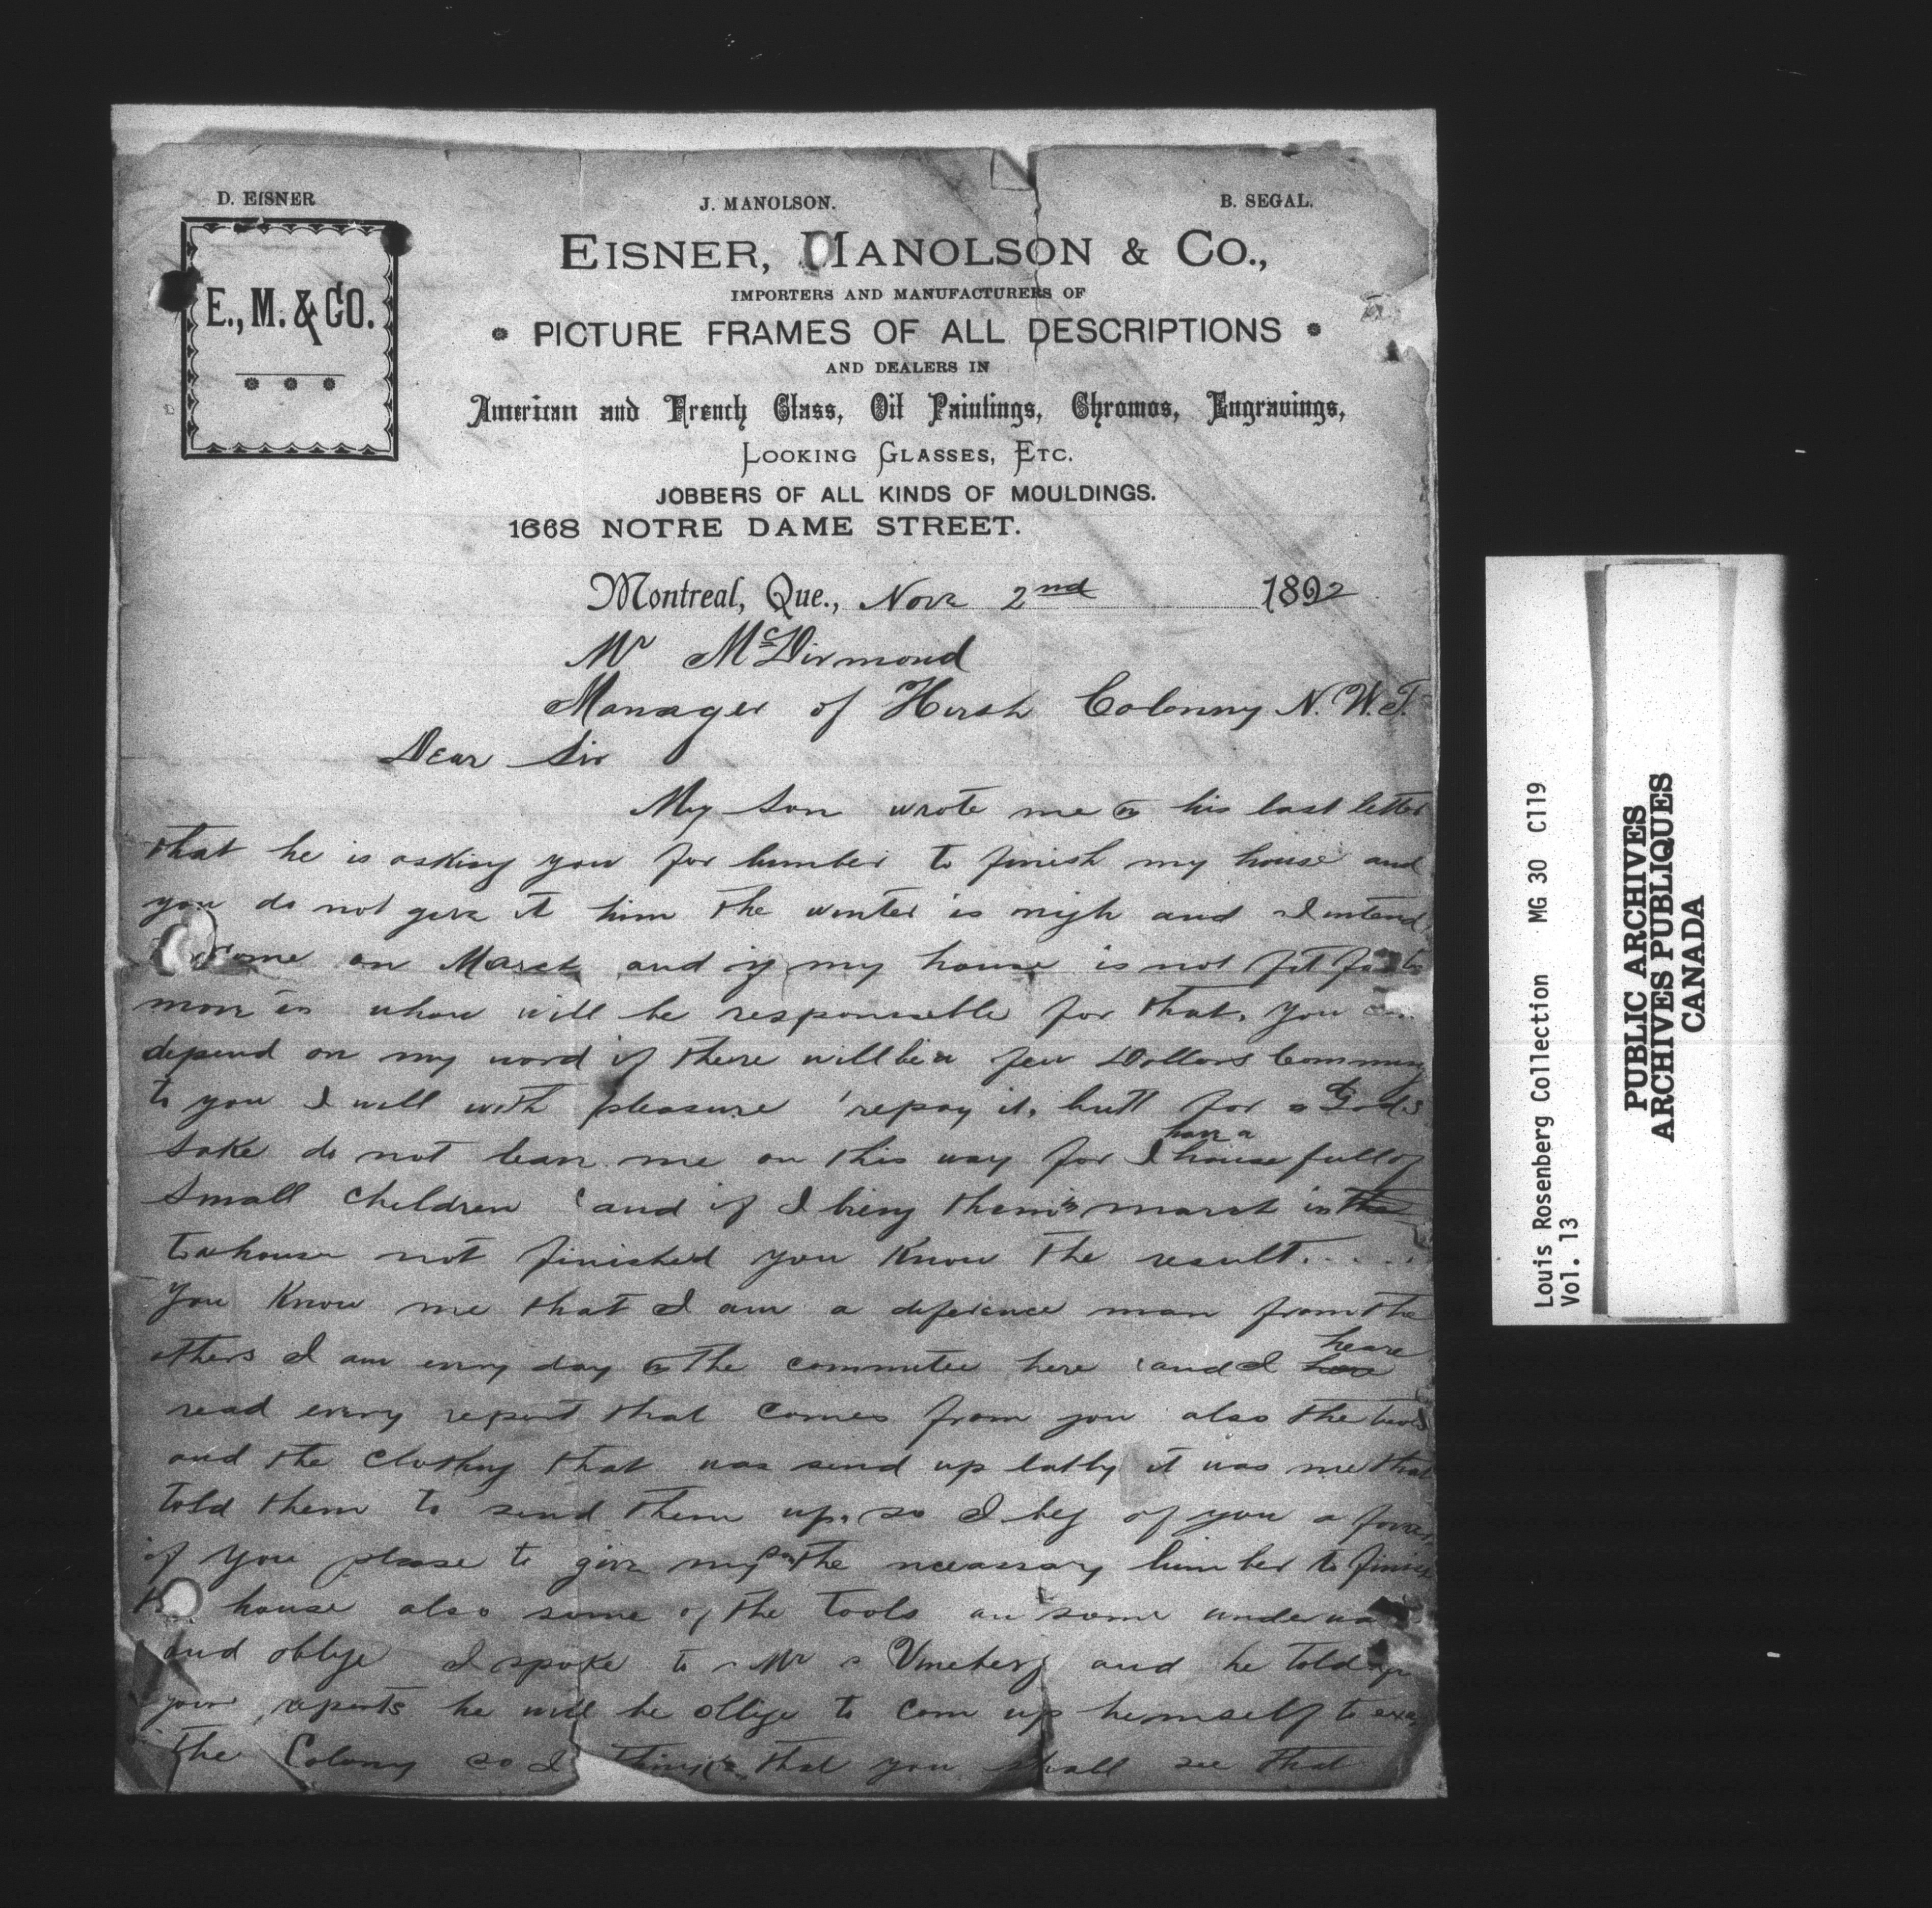 D. EISNER
J. MANOLSON.
B. SEGAL.
E., M. & CO.
EISNER, MANOLSON & CO.,
IMPORTERS AND MANUFACTURERS OF
PICTURE FRAMES OF ALL DESCRIPTIONS
AND DEALERS IN
American and French Glass, Oil Paintings, Chromos, Engravings,
LOOKING GLASSES, ETC.
JOBBERS OF ALL KINDS OF MOULDINGS.
1668 NOTRE DAME STREET.
Montreal, Que., Nov 2nd 1892
Mr McDirmond
Manager of Hirsh Colonny N.W.T.
Dear Sir
My Son wrote me in his last letter
that he is asking you for lumber to finish my house and
you do not give it him the winter is nigh and I intend
come on March and if my house is not fit
will be responsible for that. you
depend on my word if there will be a few Dollars Comming
to you I will with pleasure repay it, butt for a Gods
sake do not leav me on this way for I have a house full of
small children and if I bring them in march in
house not finished you know the result....
You know me that I am a diference man from the
others I am every day in the commitee here and I heare
read every report that comes from you also the
and the clothing that was send up latly it was me that
told them to send them up, so I beg of you a favor
if you please to give my son the necessary lumber to finish
the house also some of the tools an some
and oblige I spoke to Mr Vineberg and he told
your reports he will be oblige to com up hemself to
the Colony so I think that you shall see that
Louis Rosenberg Collection MG 30 C119
Vol. 13
PUBLIC ARCHIVES
ARCHIVES PUBLIQUES
CANADA